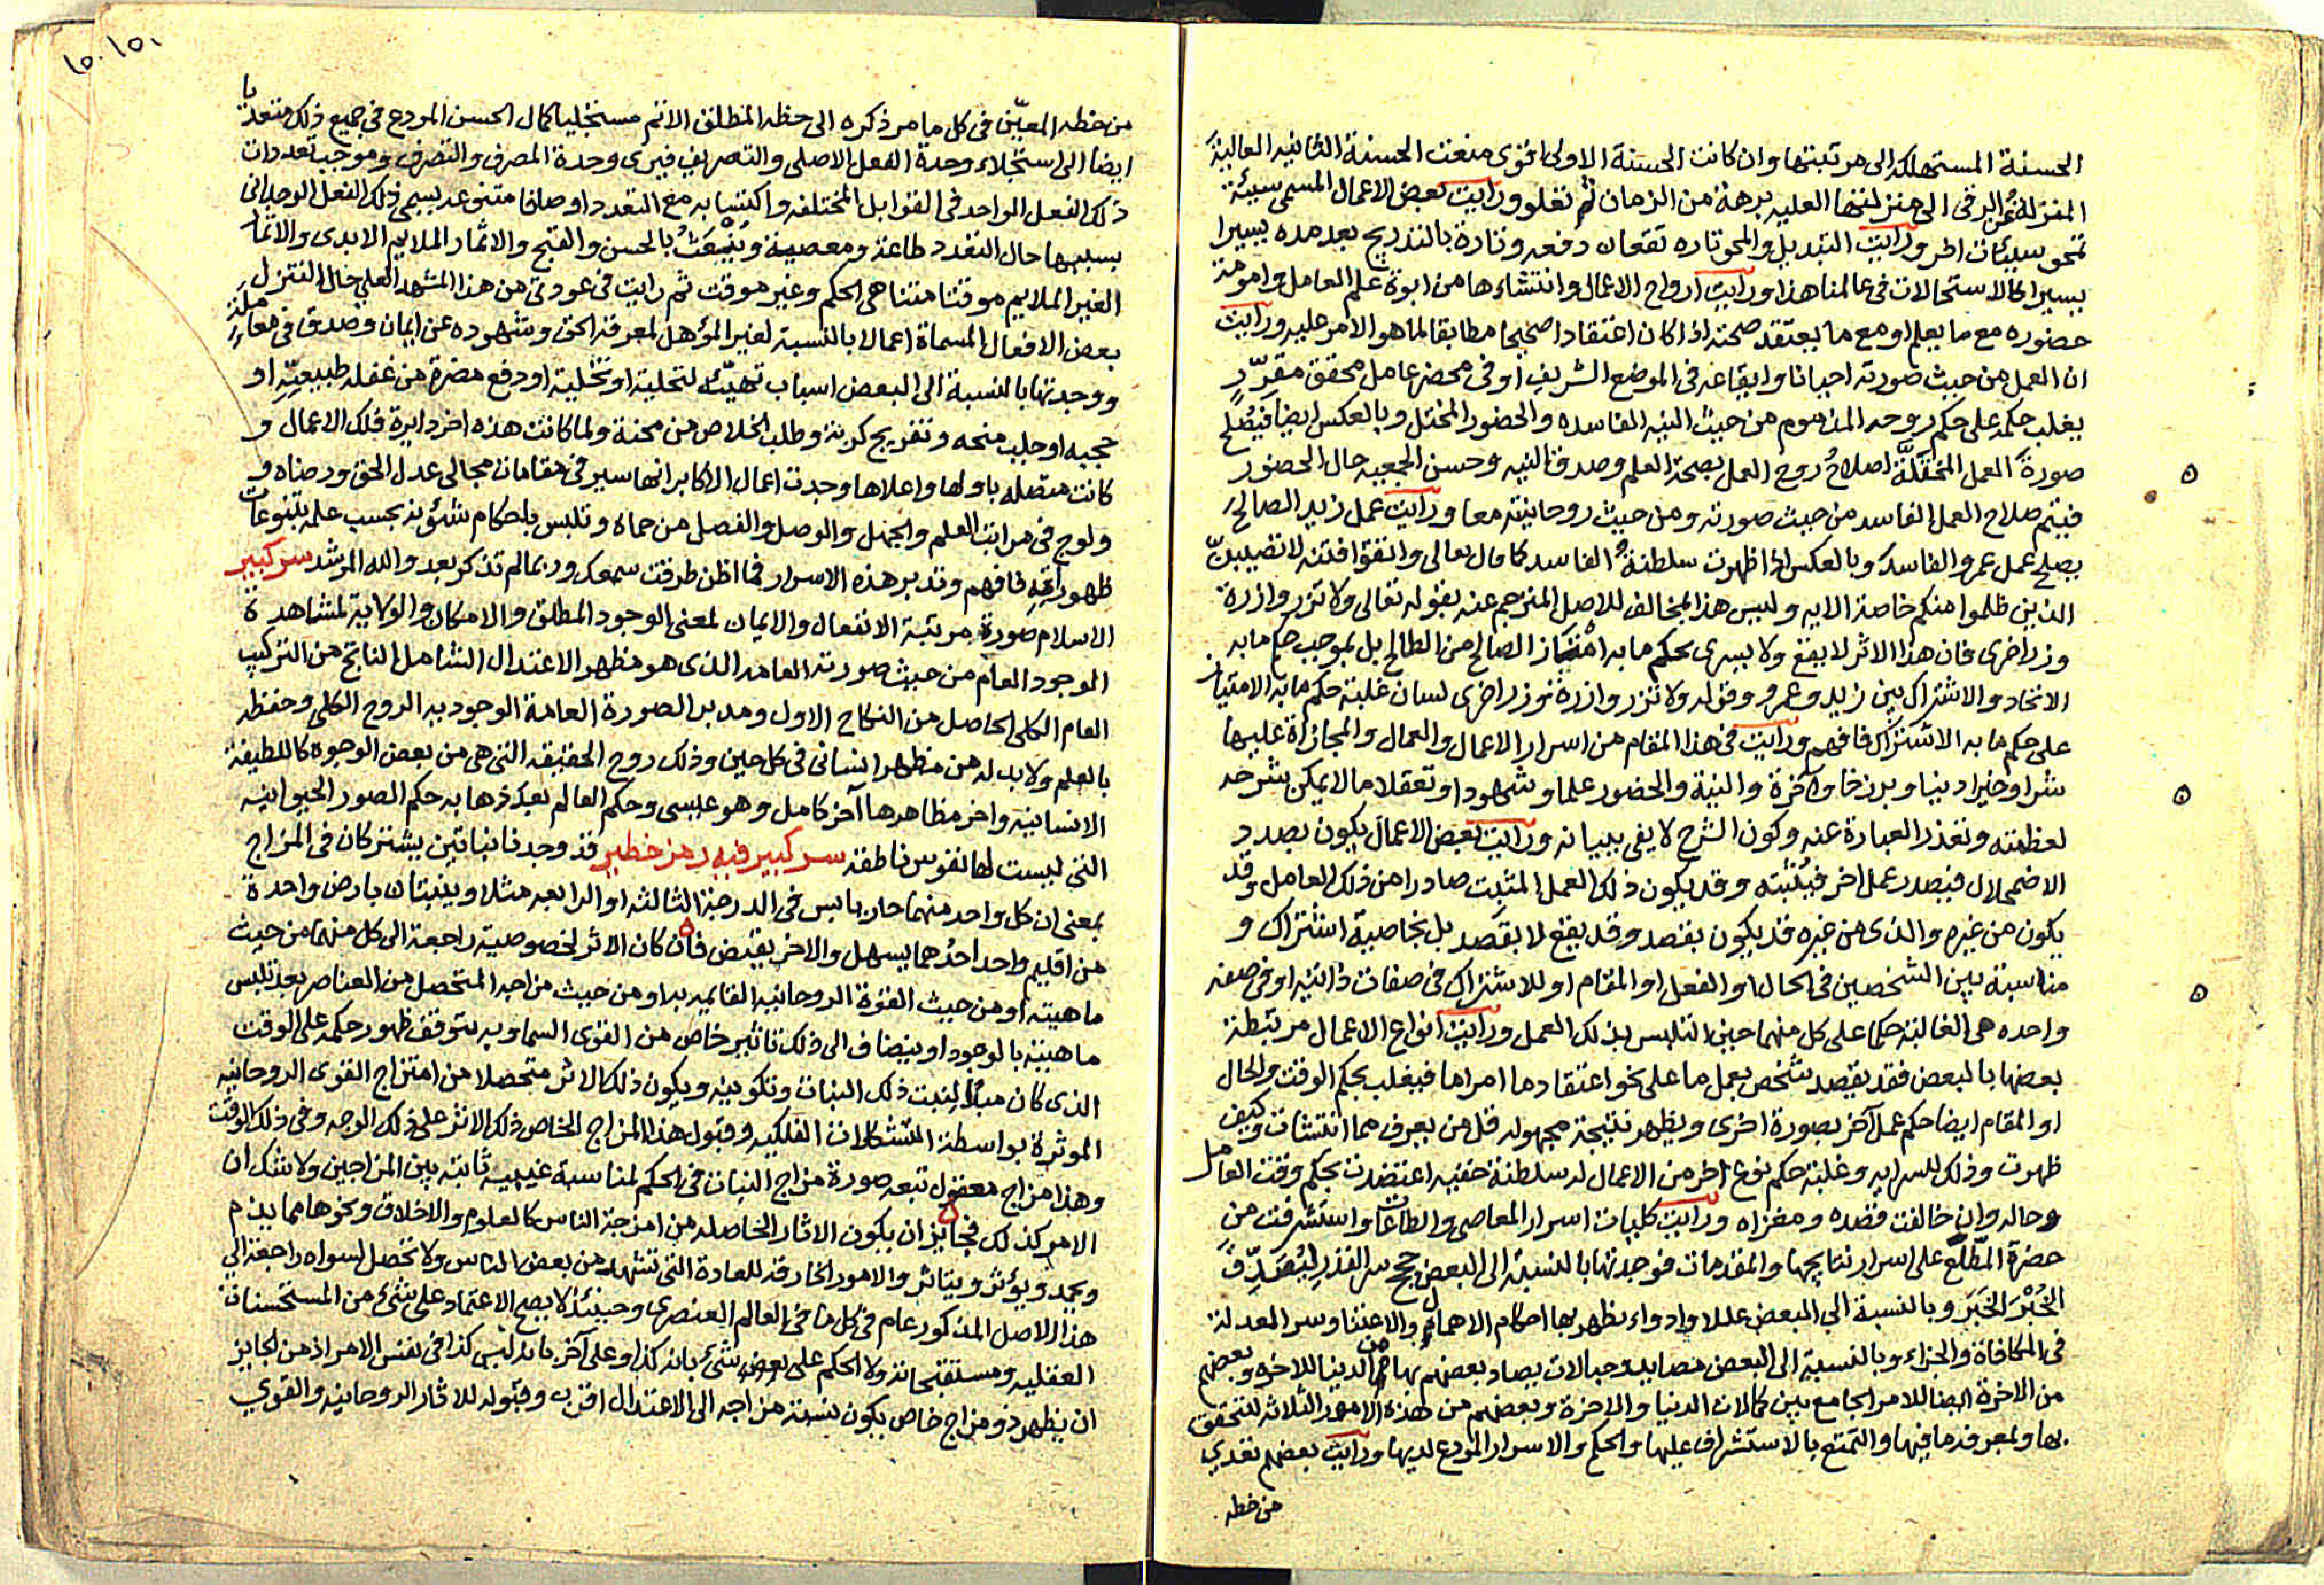 الحسنة المستهلكه الى مرتبتها وان كانت الحسنة الاولى اقوى منعت الحسنة الثانيه العالية
المنزلة عن الرقى الى منزلتها العليه برهة من الزمان ثم تعلو ورايت بعض الاعمال المسمى سيئة
تمحو سيئات اخر ورايت التبديل والمحو تاره تقعان دفعه وتارة بالتدريج بعد مده يسيرا
يسيرا كالاستحالات فى عالمنا هذا ورايت ارواح الاعمال وانتشاءها من ابوة علم العامل وامومة
حضوره مع ما يعلم او مع ما يعتقد صحته اذا كان اعتقادا صحيحا مطابقا لما هو الامر عليه ورايت
ان العمل من حيث صورته احيانا وايقاعه فى الموضع الشريف او فى محضر عامل محقق مقرّب
يغلب حكمه على حكم روحه المذموم من حيث النيه الفاسده والحضور المختل وبالعكس ايضا فيصلح
صورة العمل المختلّة اصلاح روح العمل بصحة العلم وصدق النيه وحسن الجمعيه حال الحضور
فيتم صلاح العمل الفاسد من حيث صورته ومن حيث روحانيته معا ورايت عمل زيد الصالح
يصلح عمل عمرو الفاسد وبالعكس اذا ظهرت سلطنة الفاسد كما قال تعالى واتقوا فتنة لا تصيبنّ
الذين ظلموا منكم خاصة الايه وليس هذا بمخالف للاصل المترجم عنه بقوله تعالى ولا تزر وازرة
وزر اخرى فان هذا الاثر لا يقع ولا يسرى بحكم ما به امتاز الصالح من الطالح بل بموجب حكم ما به
الاتحاد والاشتراك بين زيد وعمرو وقوله ولا تزر وازرة وزر اخرى لسان غلبة حكم ما به الامتياز
على حكم ما به الاشتراك فافهم ورايت فى هذا المقام من اسرار الاعمال والعمال والمجازاة عليها
شرا وخيرا دنيا وبرزخا وآخرة والنية والحضور علما وشهودا وتعقلا ما لا يمكن شرحه
لعظمته وتعذر العبارة عنه وكون الشرح لا يفى ببيانه ورايت بعض الاعمال يكون بصدد
الاضمحلال فيصدر عمل اخر فيثبته وقد يكون ذلك العمل المثبت صادرا من ذلك العامل وقد
يكون من غيره والذى من غيره قد يكون بقصد وقد يقع لا بقصد بل بخاصية اشتراك و
مناسبة بين الشخصين فى الحال او الفعل او المقام او للاشتراك فى صفات ذاتية او فى صفة
واحده هى الغالبة حكما على كل منهما حين التلبس بذلك العمل ورايت انواع الاعمال مرتبطة
بعضها بالبعض فقد يقصد شخص بعمل ما على نحو اعتقاد ما امرا ما فيغلب بحكم الوقت والحال
او المقام ايضا حكم عمل آخر بصورة اخرى ويظهر نتيجة مجهوله قل من يعرف مما انتشات وكيف
ظهرت وذلك للسرايه وغلبة حكم نوع اخر من الاعمال له سلطنة خفيه اعتضدت بحكم وقت العامل
وحاله وان خالفت قصده ومغزاه ورايت كليات اسرار المعاصى والطاعات واستشرفت من
حضرة المطّلع على اسرار نتايجها والمقدمات فوجدتها بالنسبة الى البعض حجج سر القدر ليُصَدِّقَ
الخُبْرَ الخَبَرَ وبالنسبة الى البعض عللا وادواء يظهر بها احكام الاهمال والاعتنا وسر المعدلة
فى المكافاة والجزاء وبالنسبة الى البعض مصايد وحبالات يصاد بعضهم بها من الدنيا للاخره وبعضهم
من الاخرة ايضا للامر الجامع بين كمالات الدنيا والاخرة وبعضهم من هذه الامور الثلاثة للتحقق
بها ولمعرفة ما فيها والتمتع بالاستشراف عليها والحكم والاسرار المودع لديها ورايت بعضهم تعدي
من حظه
١٥٠ ١٥٠
من حظه المعيّن فى كل ما مر ذكره الى حظه المطلق الاتم مستجليا كمال الحسن المودع فى جميع ذلك متعديا
ايضا الى استجلاء وحدة الفعل الاصلى والتصريف فيرى وحدة المصرف والتصرف وموجب تعددات
ذلك الفعل الواحد فى القوابل المختلفه واكتسابه مع التعدد اوصافا متنوعه يسمى ذلك الفعل الوحدانى
بسببها حال التعدد طاعة ومعصية ويُنْعَتُ بالحسن والقبح والاثمار الملايم الابدى والاثمار
الغير الملايم موقتا متناهى الحكم وغير موقت ثم رايت فى عودتى من هذا المشهد العلي حال التنزل
بعض الافعال المسماة اعمالا بالنسبة لغير المؤهل لمعرفة الحق وشهوده عن ايمان وصدق فى معاملة
ووجدتها بالنسبة الى البعض اسباب تهيّئه لتحلية او تخلية او دفع مضرة من غفلة طبيعيّة او
حجبه او جلب منحه وتفريج كربة وطلب الخلاص من محنة ولما كانت هذه اخر دايرة فلك الاعمال و
كانت متصله باولها واعلاها وجدت اعمال الاكابر انها سير فى مقامات مجالى عدل الحق ورضاه و
ولوج فى مراتب العلم والجهل والوصل والفصل من حماه وتلبس باحكام شئونه بحسب علمه بتنوعات
ظهوراته فافهم وتدبر هذه الاسرار فما اظن طرقت سمعك وربما لم تذكر بعد والله المرشد سر كبير
الاسلام صورة مرتبة الانفعال والايمان لمعنى الوجود المطلق والامكان والولاية لمشاهدة
الوجود العام من حيث صورته العامه الذى هو مظهر الاعتدال الشامل الناتج من التركيب
العام الكلى الحاصل من النكاح الاول ومدبر الصورة العامة الوجوديه الروح الكلى وحفظه
بالعلم ولا بد له من مظهر انسانى فى كل حين وذلك روح الحقيقه التى هى من بعض الوجوه كاللطيفة
الانسانية واخر مظاهرها آخر كامل وهو عيسى وحكم العالم بعد ذهابه حكم الصور الحيوانيه
التى ليست لها نفوس ناطقة سر كبير فيه رمز خطير قد وجدنا نباتين يشتركان فى المزاج
بمعنى ان كل واحد منهما حار يابس فى الدرجة الثالثه او الرابعه مثلا وينبتان بارض واحدة
من اقليم واحد احدهما يسهل والاخر يقبض فان كان الاثر لخصوصية راجعة الى كل منهما من حيث
ماهيته او من حيث القوة الروحانيه القايمه به او من حيث مزاجه المتحصل من العناصر بعد تلبس
ماهيته بالوجود او ينضاف الى ذلك تاثير خاص من القوى السماويه يتوقف ظهور حكمه على الوقت
الذى كان مبدأ لنبت ذلك النبات وتكوينه ويكون ذلك الاثر متحصلا من امتزاج القوى الروحانيه
الموثرة بواسطة التشكلات الفلكيه وقبول هذا المزاج الخاص ذلك الاثر على ذلك الوجه وفى ذلك الوقت
وهذا مزاج معقول تتبعه صورة مزاج النبات فى الحكم لمناسبة غيبية ثابتة بين المزاجين ولا شك ان
الامر كذلك فجايز ان يكون الاثار الحاصله من امزجة الناس كالعلوم والاخلاق ونحوها مما يذم
ويحمد ويؤثر ويتاثر والامور الخارقة للعادة التى تشهد من بعض الناس ولا تحصل لسواه راجعة الي
هذا الاصل المذكور عام فى كل ما فى العالم العنصرى وحينئذ لا يصح الاعتماد على شئ من المستحسنات
العقليه ومستقبحاته ولا الحكم على بعض شئ بانه كذا وعلى آخر بانه ليس كذا فى نفس الامر اذ من الجايز
ان يظهر ذو مزاج خاص يكون نسبة مزاجه الى الاعتدال اقرب وقبوله للاثار الروحانيه والقوي